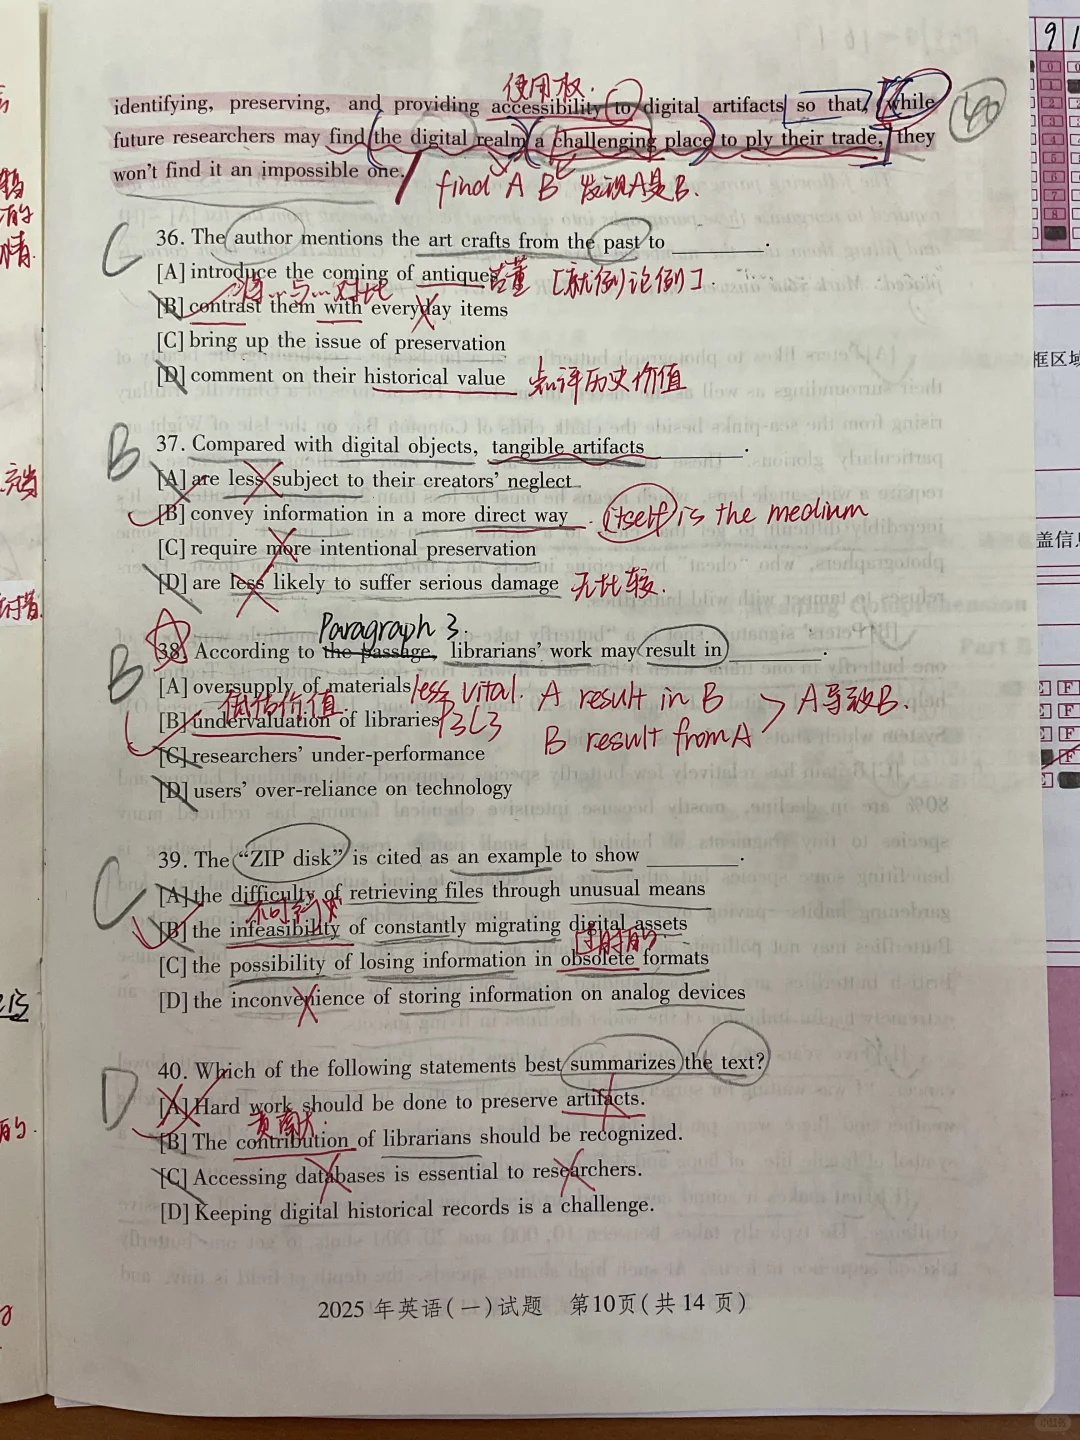 使用权.
identifying, preserving, and providing accessibility to digital artifacts so that, while
future researchers may find the digital realm a challenging place to ply their trade, they
won't find it an impossible one.
find A B 发现A是B.
40
C 36. The author mentions the art crafts from the past to ________.
[A] introduce the coming of antiques 古董 [就(例)论例].
将…与…对比
[B] contrast them with everyday items
[C] bring up the issue of preservation
[D] comment on their historical value 点评历史价值
B 37. Compared with digital objects, tangible artifacts ________.
[A] are less subject to their creators' neglect
[B] convey information in a more direct way. itself is the medium
[C] require more intentional preservation
[D] are less likely to suffer serious damage 无比较.
Paragraph 3.
B 38. According to the passage, librarians' work may result in ________.
[A] oversupply of materials less vital. A result in B
低估价值
[B] undervaluation of libraries P3L3 A导致B.
B result from A
[C] researchers' under-performance
[D] users' over-reliance on technology
C 39. The "ZIP disk" is cited as an example to show ________.
[A] the difficulty of retrieving files through unusual means
[B] the infeasibility of constantly migrating digital assets
过时的
[C] the possibility of losing information in obsolete formats
[D] the inconvenience of storing information on analog devices
D 40. Which of the following statements best summarizes the text?
[A] Hard work should be done to preserve artifacts.
贡献
[B] The contribution of librarians should be recognized.
[C] Accessing databases is essential to researchers.
[D] Keeping digital historical records is a challenge.
2025 年英语(一)试题 第10页(共 14 页)